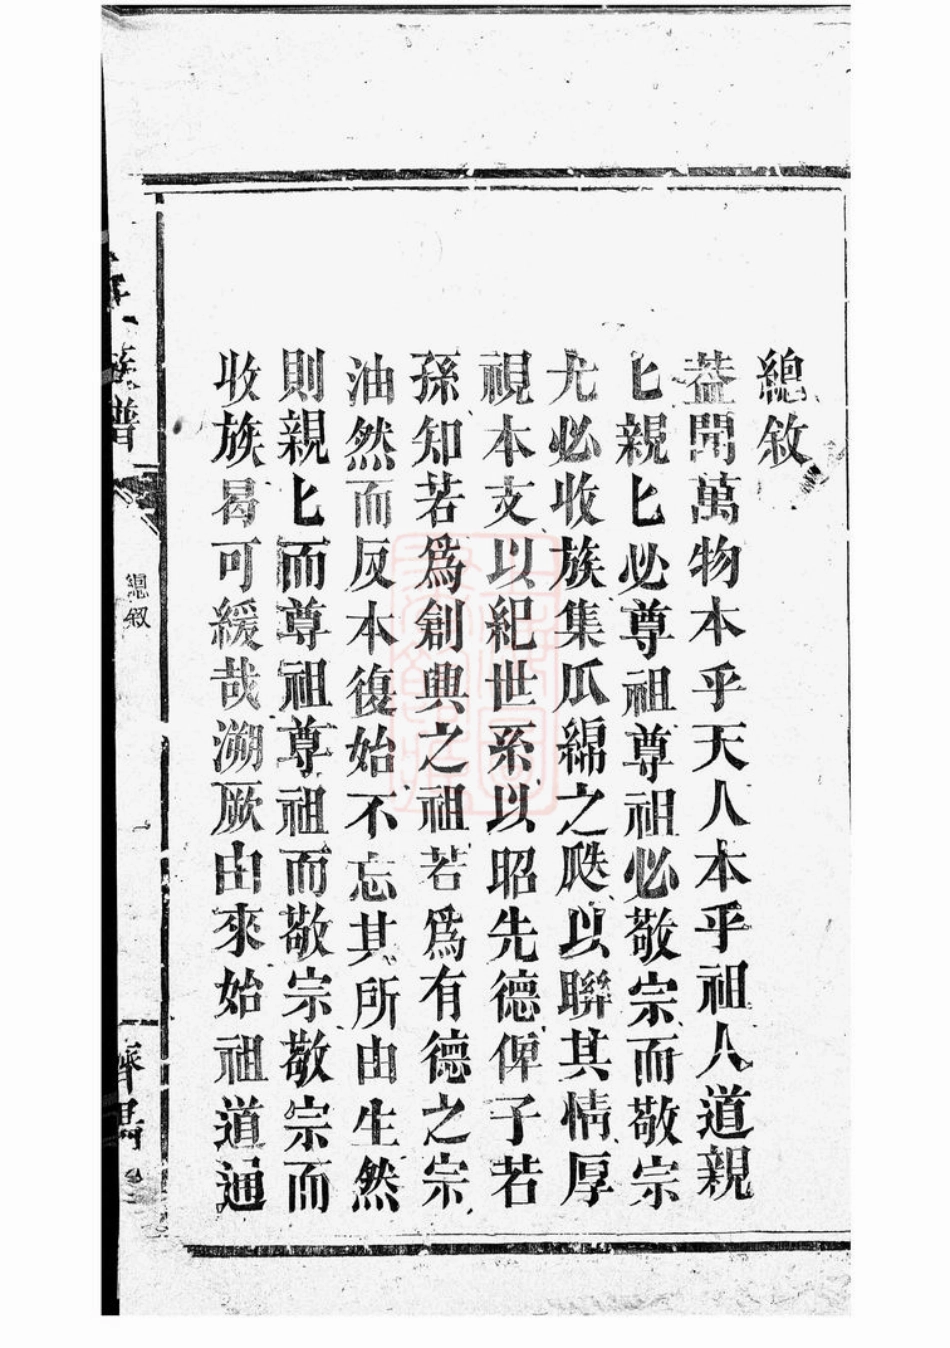 總敘
葢聞萬物本乎天人本乎祖人道親
匕親匕必尊祖尊祖必敬宗而敬宗
尤必收族集瓜綿之瓞以聯其情厚
視本支以紀世系以昭先德俾子若
孫知若為創興之祖若為有德之宗
油然而反本復始不忘其所由生然
則親匕而尊祖尊祖而敬宗敬宗而
收族曷可緩哉溯厥由來始祖道通
族譜
總敘